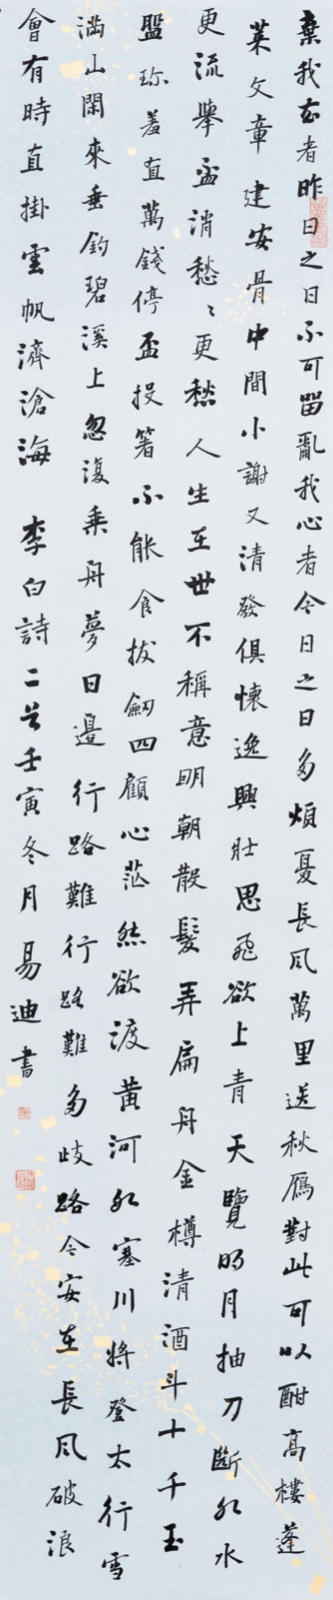 棄我去者昨日之日不可留亂我心者今日之日多煩憂長風萬里送秋雁對此可以酣高樓蓬
萊文章建安骨中間小謝又清發俱懷逸興壯思飛欲上青天覽明月抽刀斷水水
更流舉盃消愁愁更愁人生在世不稱意明朝散髮弄扁舟金樽清酒斗十千玉
盤珎羞直萬錢停盃投箸不能食拔劒四顧心茫然欲渡黃河冰塞川將登太行雪
滿山閑來垂釣碧溪上忽復乘舟夢日邊行路難行路難多歧路今安在長風破浪
會有時直掛雲帆濟滄海 李白詩二首壬寅冬月易迪書